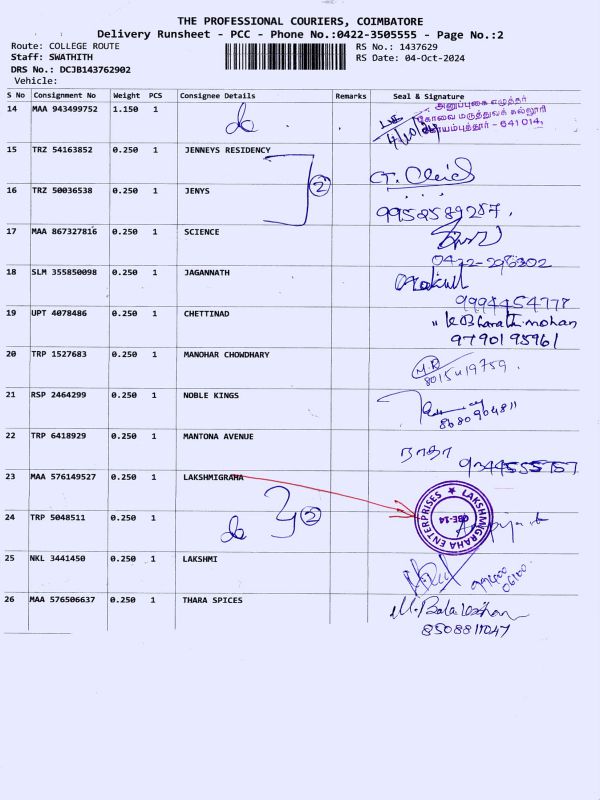 THE PROFESSIONAL COURIERS, COIMBATORE
Delivery Runsheet - PCC - Phone No.:0422-3505555 - Page No.:2
Route: COLLEGE ROUTE
RS No.: 1437629
Staff: SWATHITH
RS Date: 04-Oct-2024
DRS No.: DCJB143762902
Vehicle:
S No Consignment No Weight PCS Consignee Details Remarks Seal & Signature
14 MAA 943499752 1.150 1 do
அனுப்புகை எழுத்தர்
கோவை மருத்துவக் கல்லூரி
கோயம்புத்தூர் - 641 014.
4/10/24
15 TRZ 54163852 0.250 1 JENNEYS RESIDENCY
16 TRZ 50036538 0.250 1 JENYS
2
9952589287.
17 MAA 867327816 0.250 1 SCIENCE
18 SLM 355850098 0.250 1 JAGANNATH
9994454778
19 UPT 4078486 0.250 1 CHETTINAD
" K Bharath mohan
9790195961
20 TRP 1527683 0.250 1 MANOHAR CHOWDHARY
M.R
8015419759.
21 RSP 2464299 0.250 1 NOBLE KINGS
22 TRP 6418929 0.250 1 MANTONA AVENUE
ராதா
23 MAA 576149527 0.250 1 LAKSHMIGRAHA
LAKSHMIGRAHA ENTERPRISES ★
CBE-14
24 TRP 5048511 0.250 1 do
2
25 NKL 3441450 0.250 1 LAKSHMI
99400
06100
26 MAA 576506637 0.250 1 THARA SPICES
8508811047